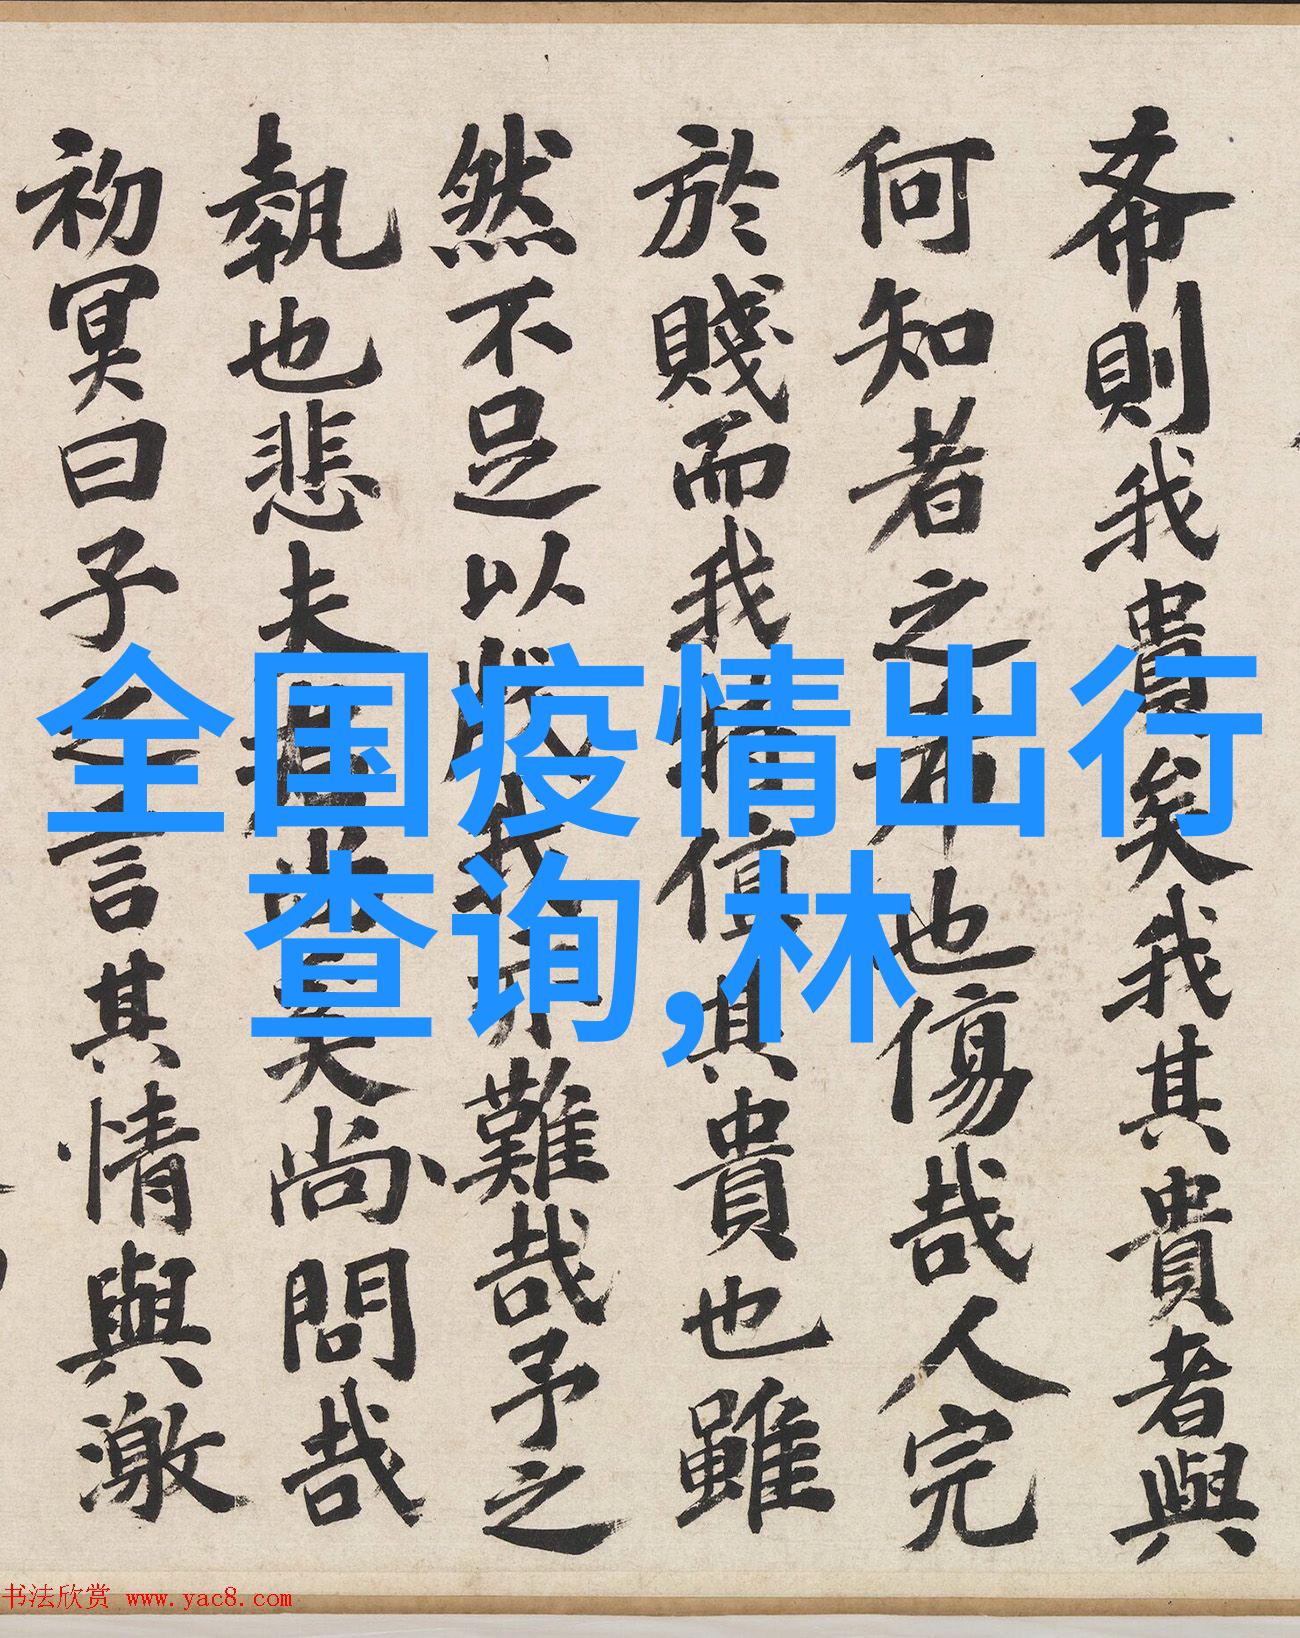 希則我貴矣我其貴者與
何知者之希也傷哉人完
於賤而我獨傷其貴也雖
然不足以戚我亦難哉予之
執也悲夫
尚問哉
初冥曰子之言其情與激
全国疫情出行
查询,林
书法欣赏 www.yac8.com